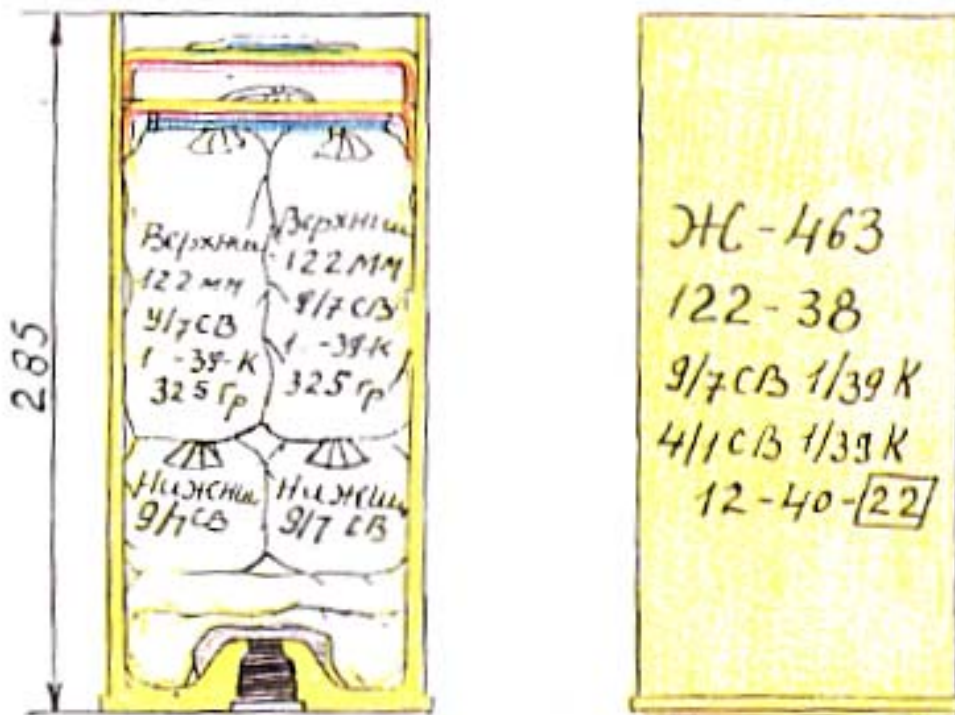 285
Верхний
122 мм
9/7 СВ
1 -39-К
325 гр
Верхний
122 мм
9/7 СВ
1 -39-К
325 гр
Нижний
9/7 СВ
Нижний
9/7 СВ
Ж-463
122-38
9/7 СВ 1/39 К
4/1 СВ 1/39 К
12-40-22